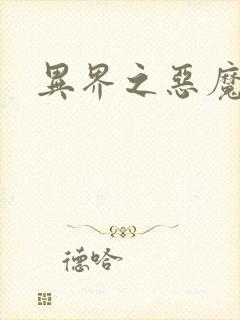 異界之惡魔
德哈